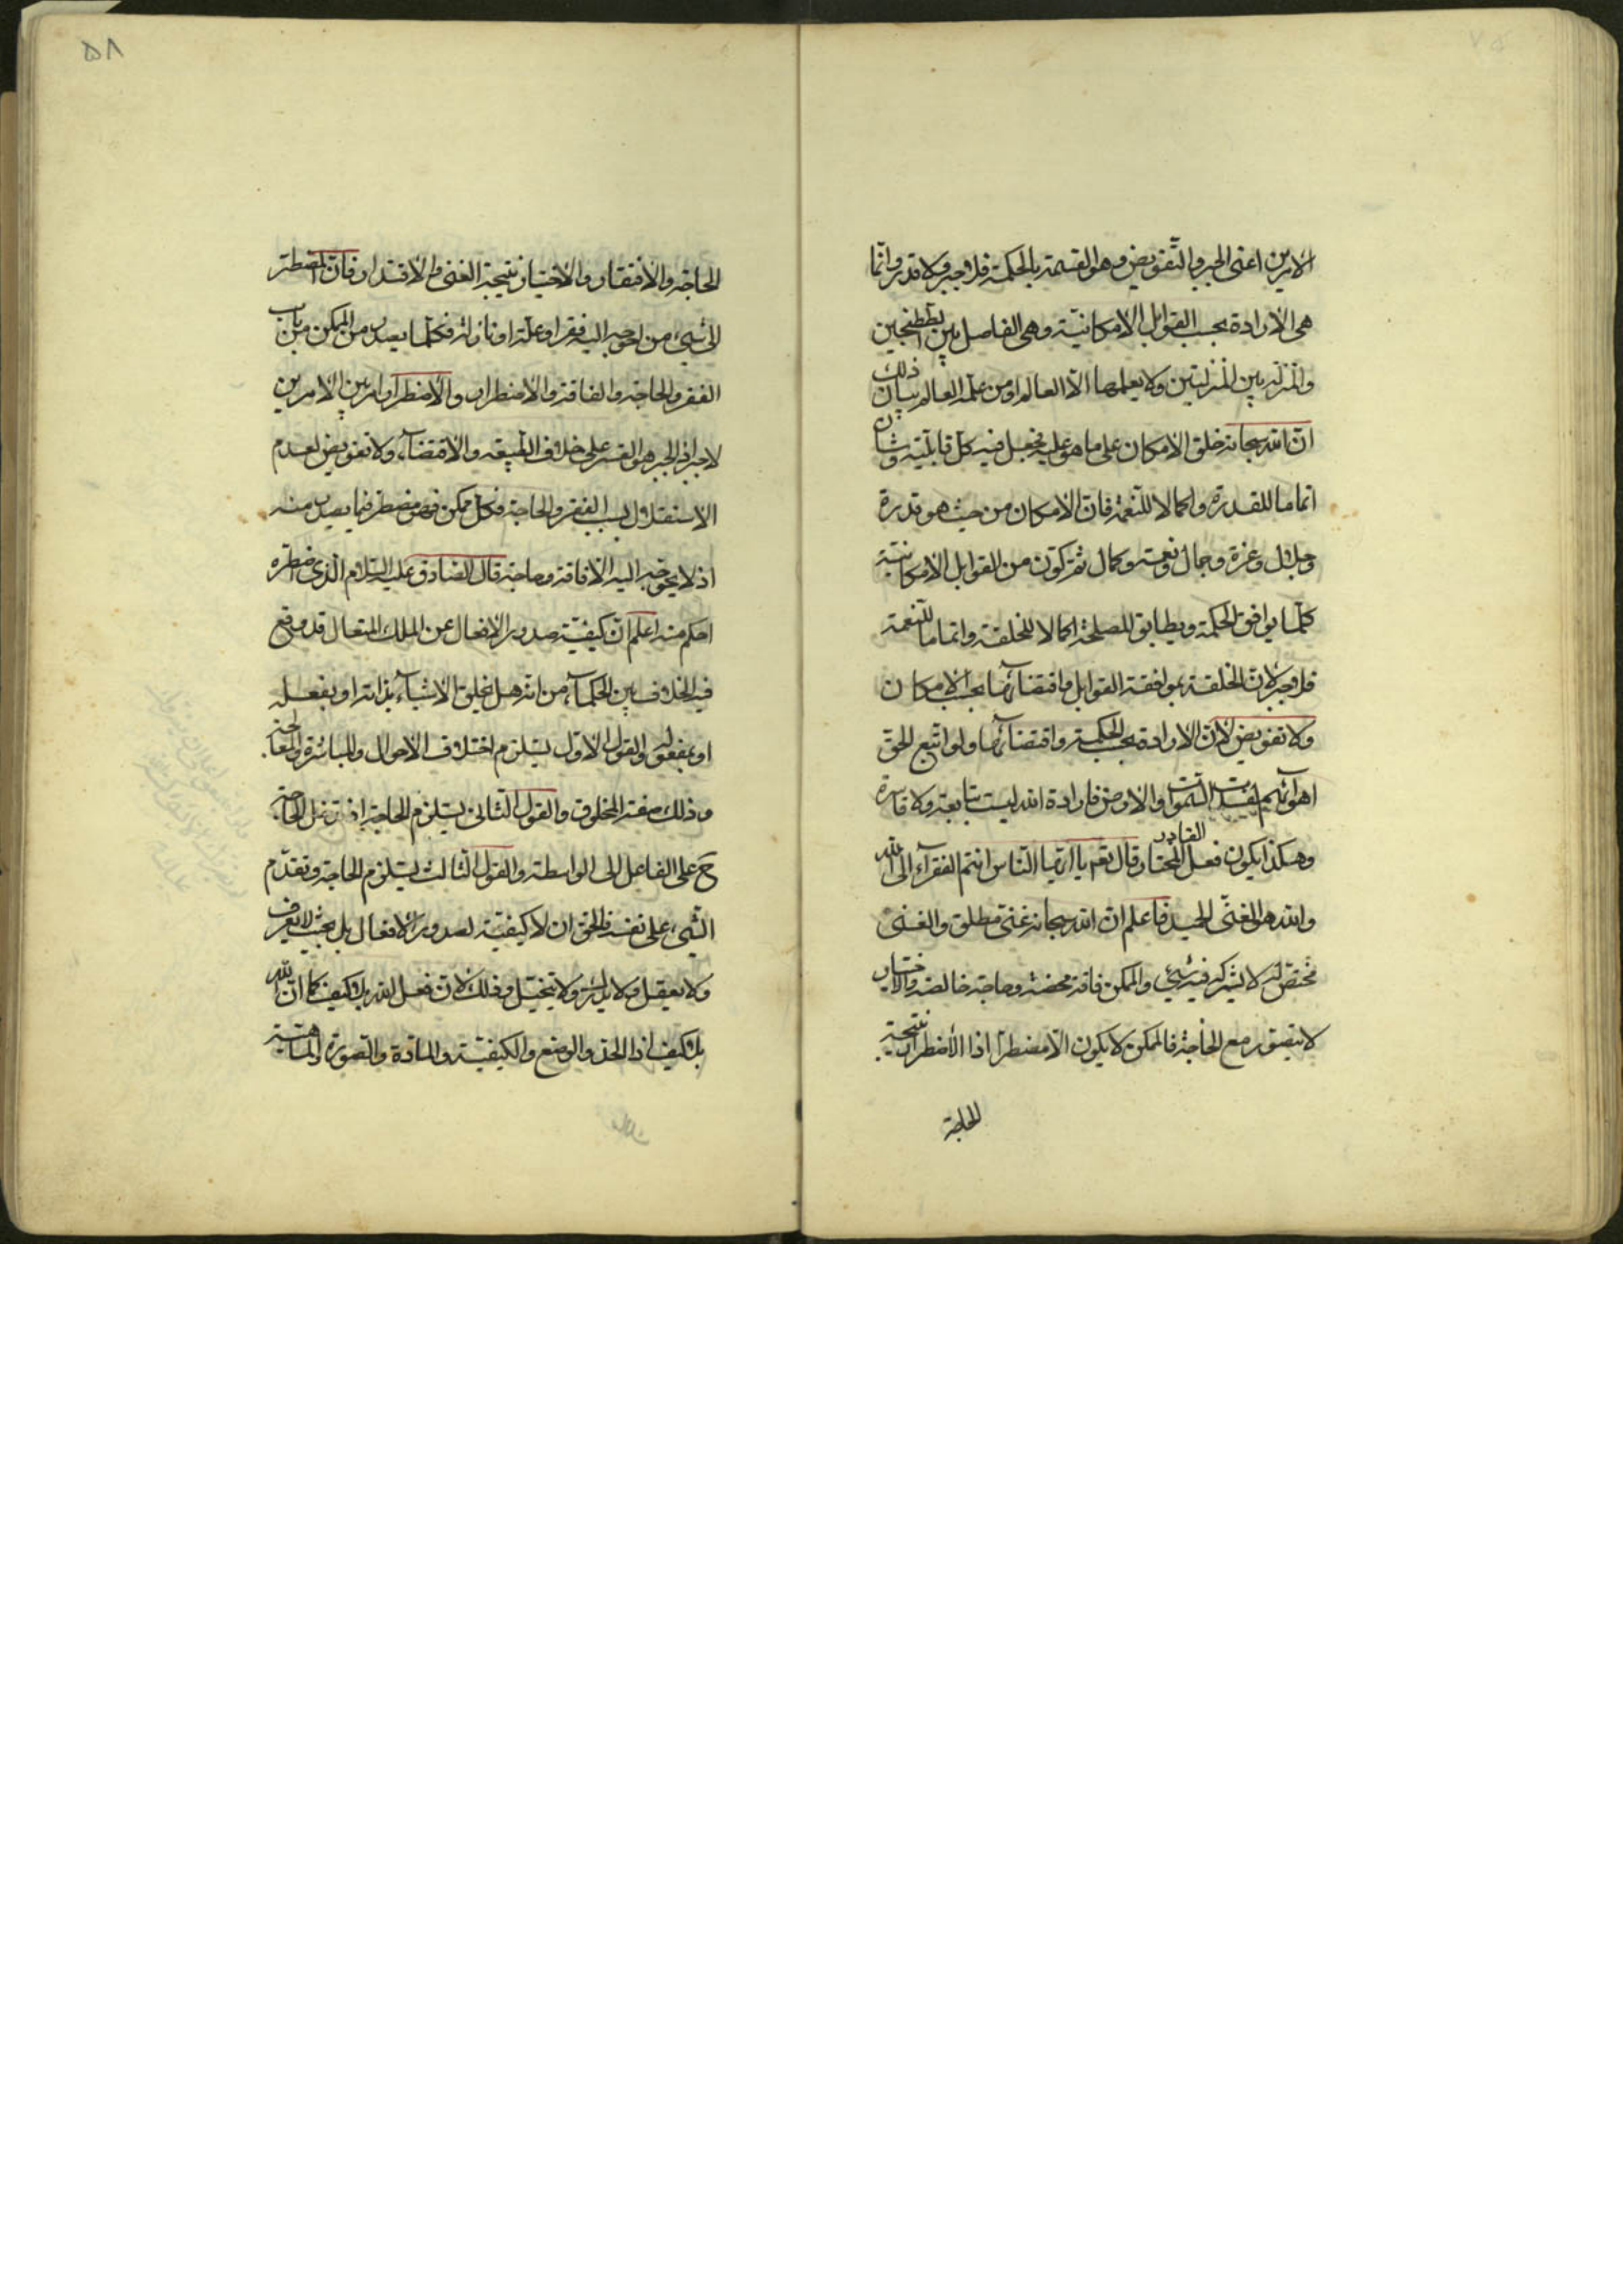 الامرين اعنى الجبر والتفويض وهو القسمة بالحكمة فلا جبر ولا قدر وانّما
هى الارادة بحسب القوابل الامكانيّة وهى الفاصل بين الطتنجين
والمنزلة بين المنزلتين ولا يعلمها الّا العالم او من علّمه العالم بيان ذلك
انّ الله سبحانه خلق الامكان على ما هو عليه فجعل فيه كلّ قابليّة وشان
اتماما للقدرة واكمالا للنّعمة فانّ الامكان من حيث هو قدرة
وجلال وعزة وجمال ونعمة وكمال ثم كوّن من القوابل الامكانيّة
كلّما يوافق الحكمة ويطابق المصلحة اكمالا للخلقة واتماما للنّعمة
فلا جبر لانّ الخلقة بموافقة القوابل واقتضائها بحسب الامكان
ولا تفويض لانّ الارادة بحسب الحكمة واقتضائها ولو اتّبع الحقّ
اهوآئهم لفسدت السّموات والارض فارادة الله ليست بتابعة ولا قاسرة
وهكذا يكون فعل القادر المختار قال تعم يا ايّها النّاس انتم الفقرآء الى الله
والله هو الغنىّ الحميد فاعلم انّ الله سبحانه غنىّ مطلق والغنى
مختصّ له لا يشركه فيه شيء والممكن فاقة محضة وحاجة خالصة والاختيار
لا يتصوّر مع الحاجة فالممكن لا يكون الّا مضطرّا اذا الاضطرار نتيجة
الحاجة
٥٨
الحاجة والافتقار والاختيار نتيجة الغنى والاقتدار فانّ المضطرّ
الى شيء من احوجه اليه فقر او علّة او نازلة فكلّما يصدر من الممكن من باب
الفقر والحاجة والفاقة والاضطرار والاضطرار امر بين الامرين
لا جبر اذ الجبر هو القسر على خلاف الطّبيعة والاقتضآء ولا تفويض لعدم
الاستقلال بسبب الفقر والحاجة فكلّ ممكن فهو مضطر فيما يصدر منه
اذ لا يحوجه اليه الّا فاقة وحاجة قال الصّادق عليه السّلام الّذى اضطره
احكم منه اعلم انّ كيفيّة صدور الافعال عن الملك المتعال قد وقع
فيه الخلاف بين الحكمآء من انّه هل يخلق الاشيآء بذاته او بفعله
او بمفعوله والقول الاوّل يستلزم اختلاف الاحوال والمباشرة والمعالجة
وذلك صفة المخلوق والقول الثّانى يستلزم الحاجة اذ
ح على الفاعل الى الواسطة والقول الثّالث يستلزم الحاجة وتقدّم
الشّيء على نفسه فالحقّ ان لا كيفيّة لصدور الافعال بل بحيث لا يعرف
ولا يعقل ولا يدرك ولا يتخيّل وذلك لانّ فعل الله بلا كيف كما انّ الله
بلا كيف اذ الحدّ والوضع والكيفيّة والمادة والصّورة والماهيّة